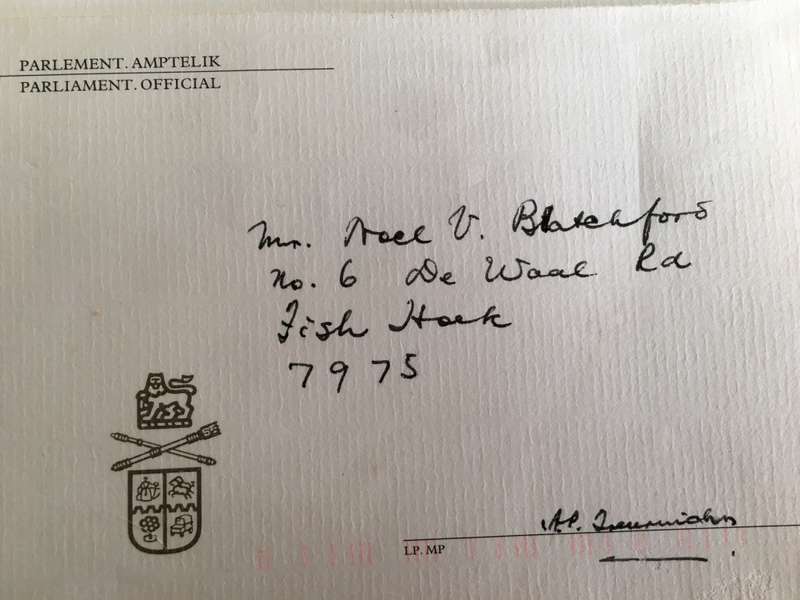 PARLEMENT. AMPTELIK
PARLIAMENT. OFFICIAL
Mr. Noel V. Blatchford
No. 6 De Waal Rd
Fish Hoek
7975
A.P. Treurnicht
LP. MP